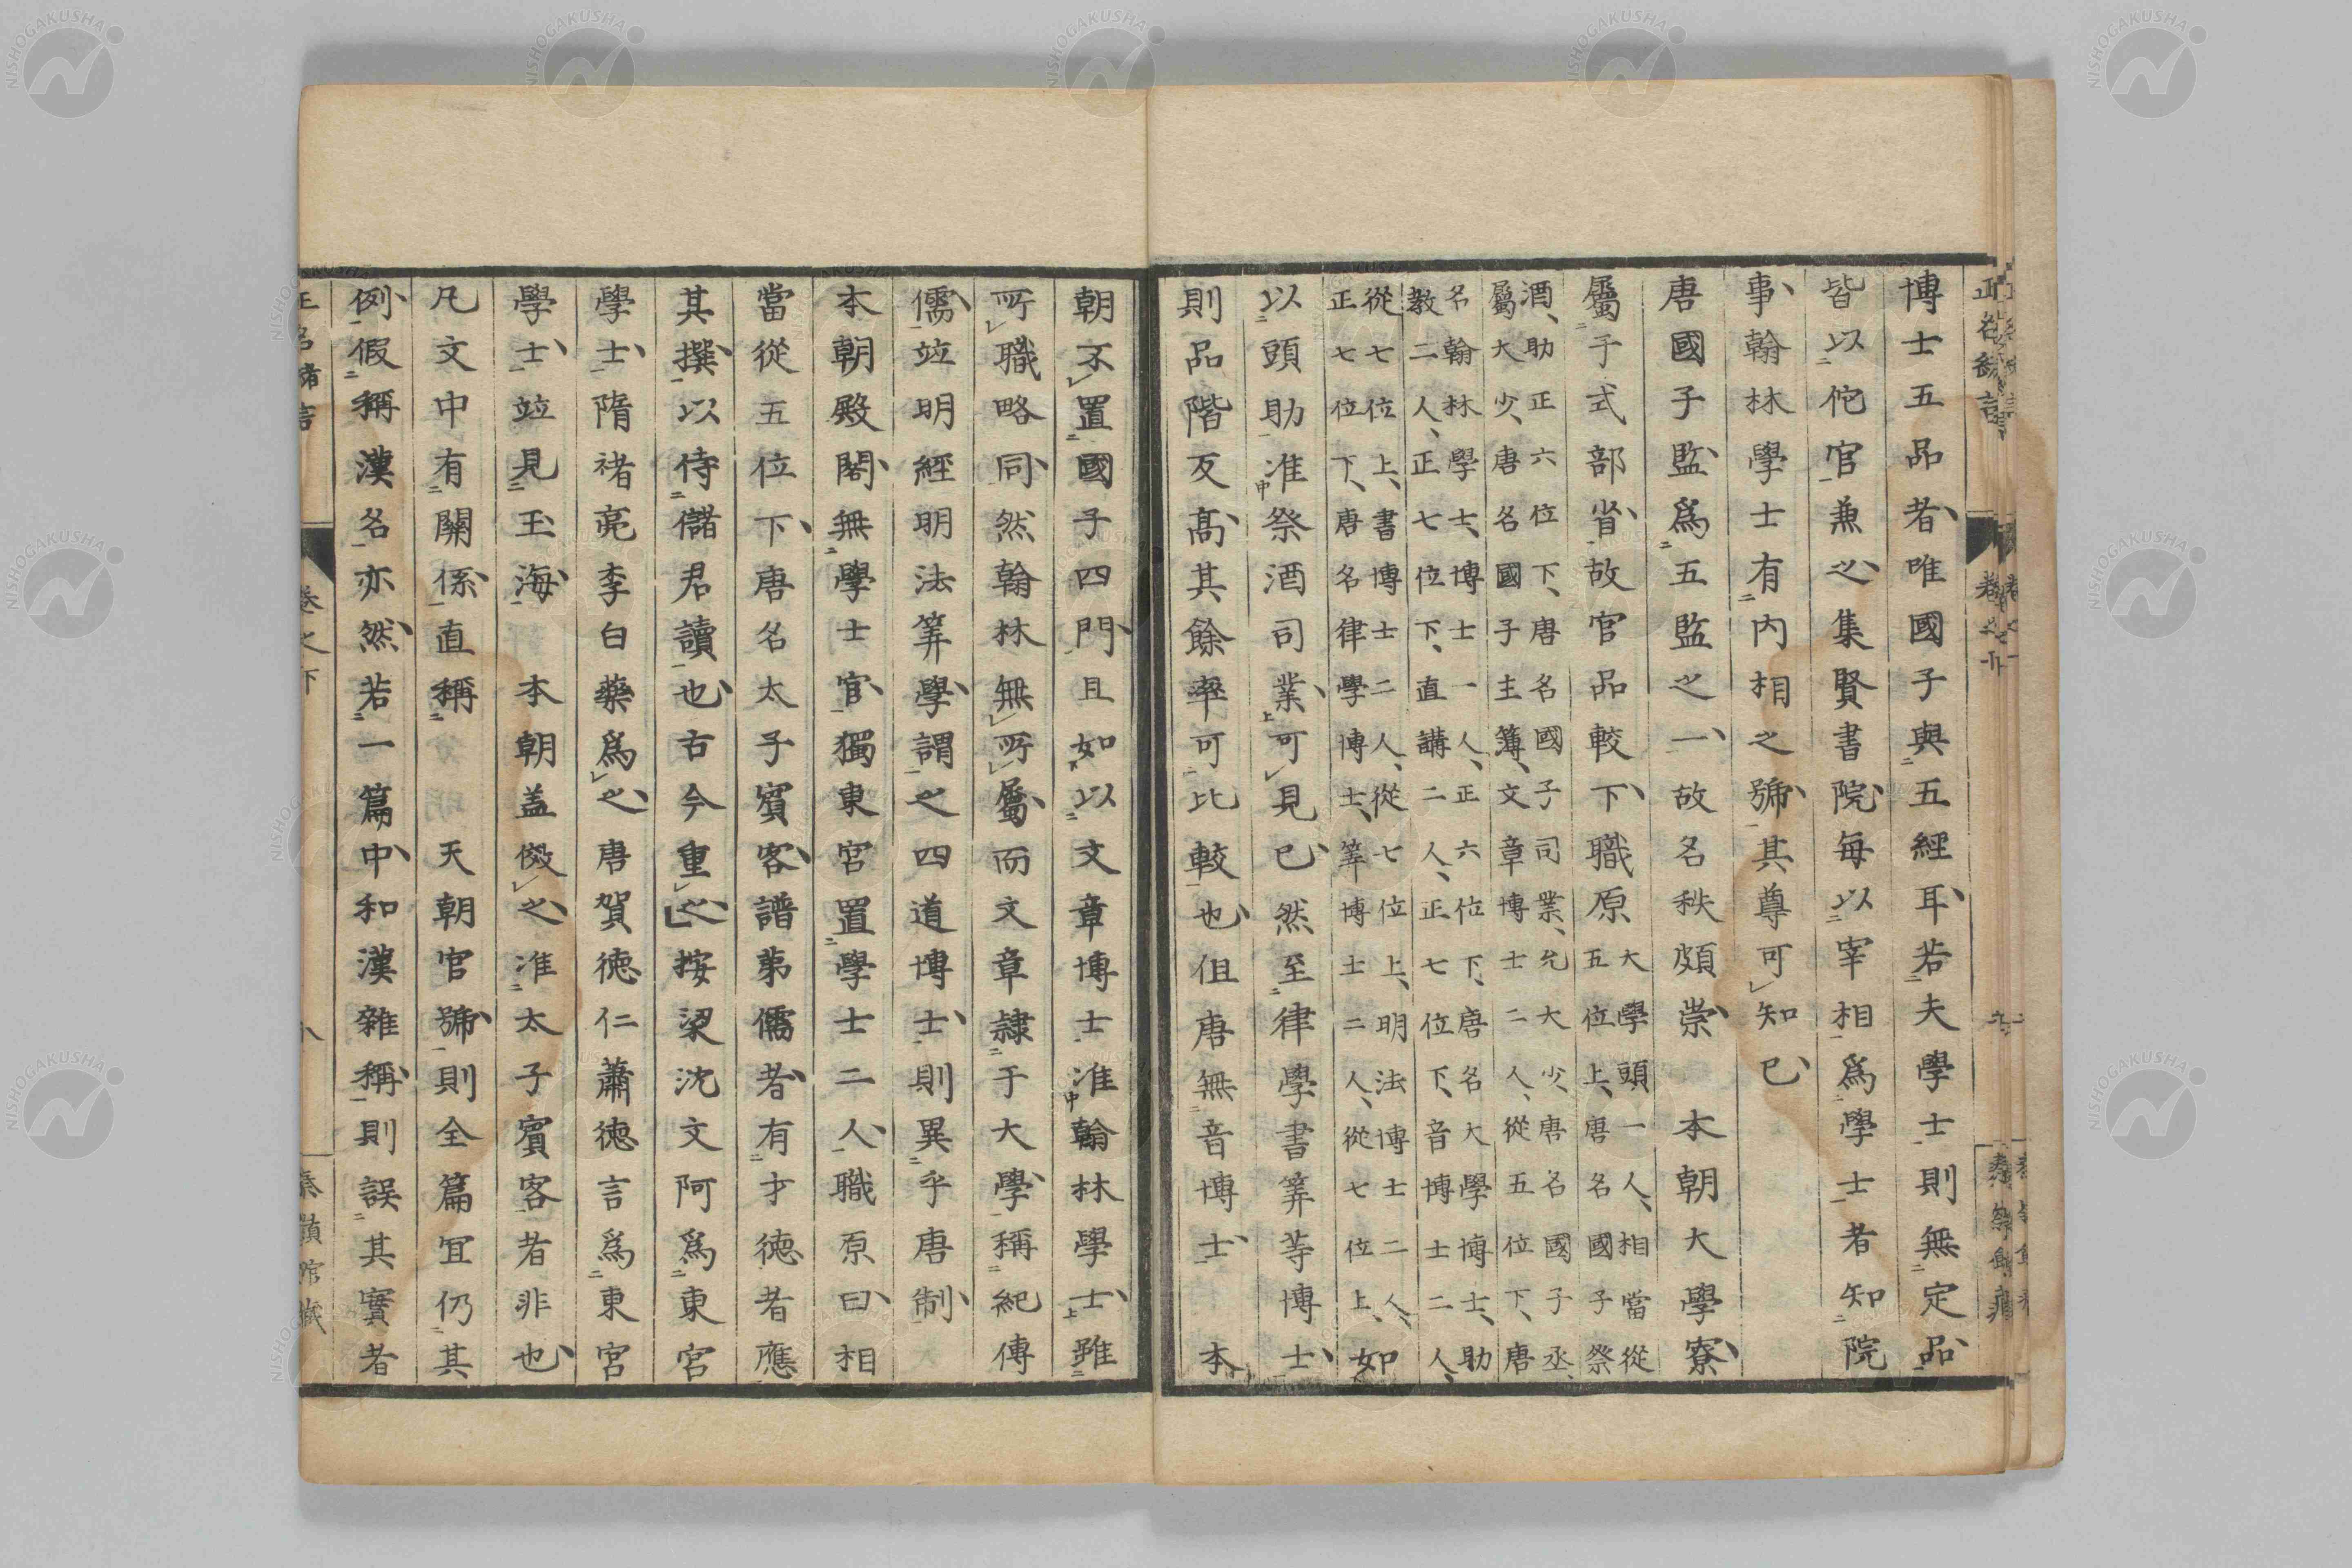 博士五品者、唯國子與五經耳、若夫學士則無定品、
皆以佗官兼之、集賢書院、每以宰相爲學士者知院
事、翰林學士有内相之號、其尊可知已、
唐國子監、爲五監之一、故名秩頗崇、 本朝大學寮、
屬于式部省、故官品較下、職原
大學頭一人、相當從
五位上、唐名國子祭
酒、助正六位下、唐名國子司業、允大少、唐名國子丞、
屬大少、唐名國子主簿、文章博士二人、從五位下、唐
名翰林學士、博士一人、正六位下、唐名大學博士、助
教二人、正七位下、直講二人、正七位下、音博士二人、
從七位上、書博士二人、從七位上、明法博士二人、
正七位下、唐名律學博士、筭博士二人、從七位上、
如
以頭助准祭酒司業、可見已、然至律學書筭等博士、
則品階反高、其餘率可比較也、但唐無音博士、 本
朝不置國子四門、且如以文章博士准翰林學士、雖
所職略同、然翰林無所屬、而文章隷于大學、稱紀傳
儒、竝明經明法筭學、謂之四道博士、則異乎唐制、
本朝殿閣、無學士官、獨東宮置學士二人、職原曰、相
當從五位下、唐名太子賓客、譜第儒者、有才德者應
其撰、以侍儲君讀也、古今重之、按梁沈文阿爲東宮
學士、隋褚亮李白藥爲之、唐賀德仁蕭德言爲東宮
學士、竝見玉海、 本朝盖倣之、准太子賓客者非也、
凡文中有關係、直稱 天朝官號、則全篇宜仍其
例、假稱漢名亦然、若一篇中、和漢雜稱、則誤其實者
正名緒言
卷之下
八